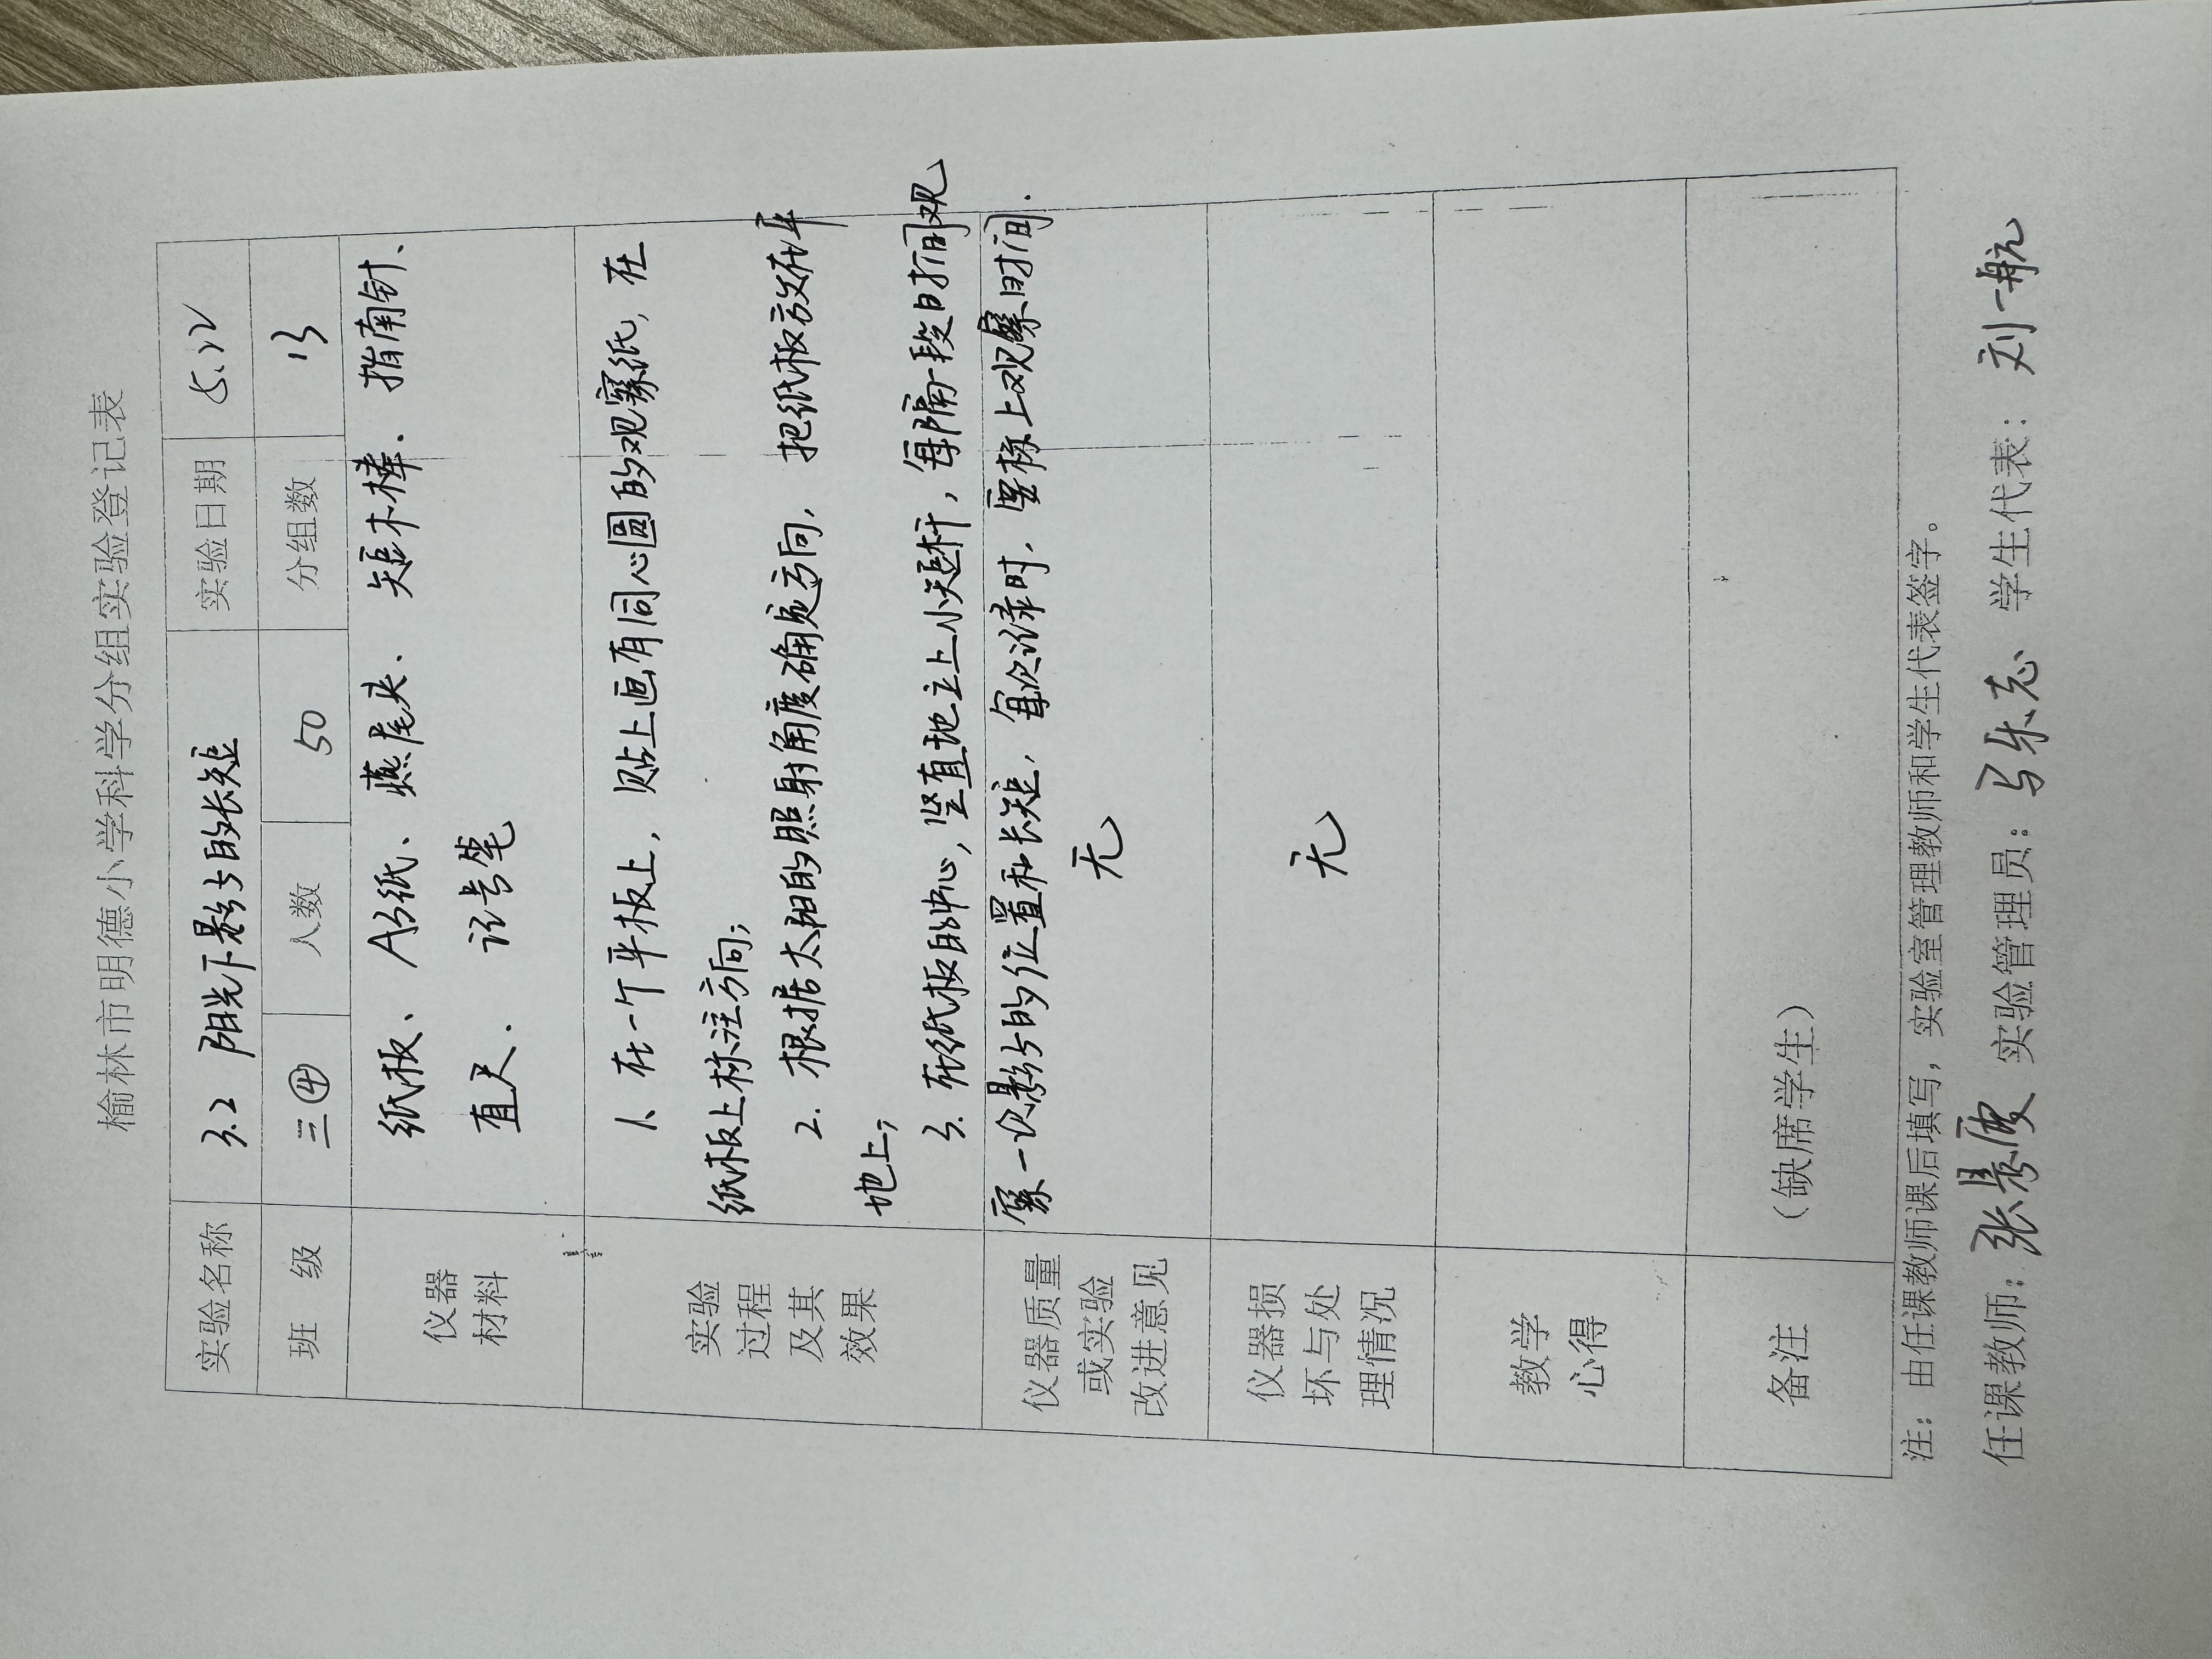 榆林市明德小学科学分组实验登记表
实验名称 3.2 阳光下影子的长短 实验日期 5.12
班 级 三④ 人数 50 分组数 13
仪器材料 纸板、A3纸、燕尾夹、短木棒、指南针、
直尺、记号笔
实验过程及其效果 1、在一个平板上，贴上画有同心圆的观察纸，在
纸板上标注方向；
2. 根据太阳的照射角度确定方向，把纸板放在平
地上；
3. 在纸板的中心，竖直地立上小短杆，每隔一段时间观
察一次影子的位置和长短，每次记录时，要标上观察时间.
仪器质量或实验改进意见 无
仪器损坏与处理情况 无
教学心得
备注 （缺席学生）
注：由任课教师课后填写，实验室管理教师和学生代表签字。
任课教师： 张 实验管理员：马乐志 学生代表：刘一航